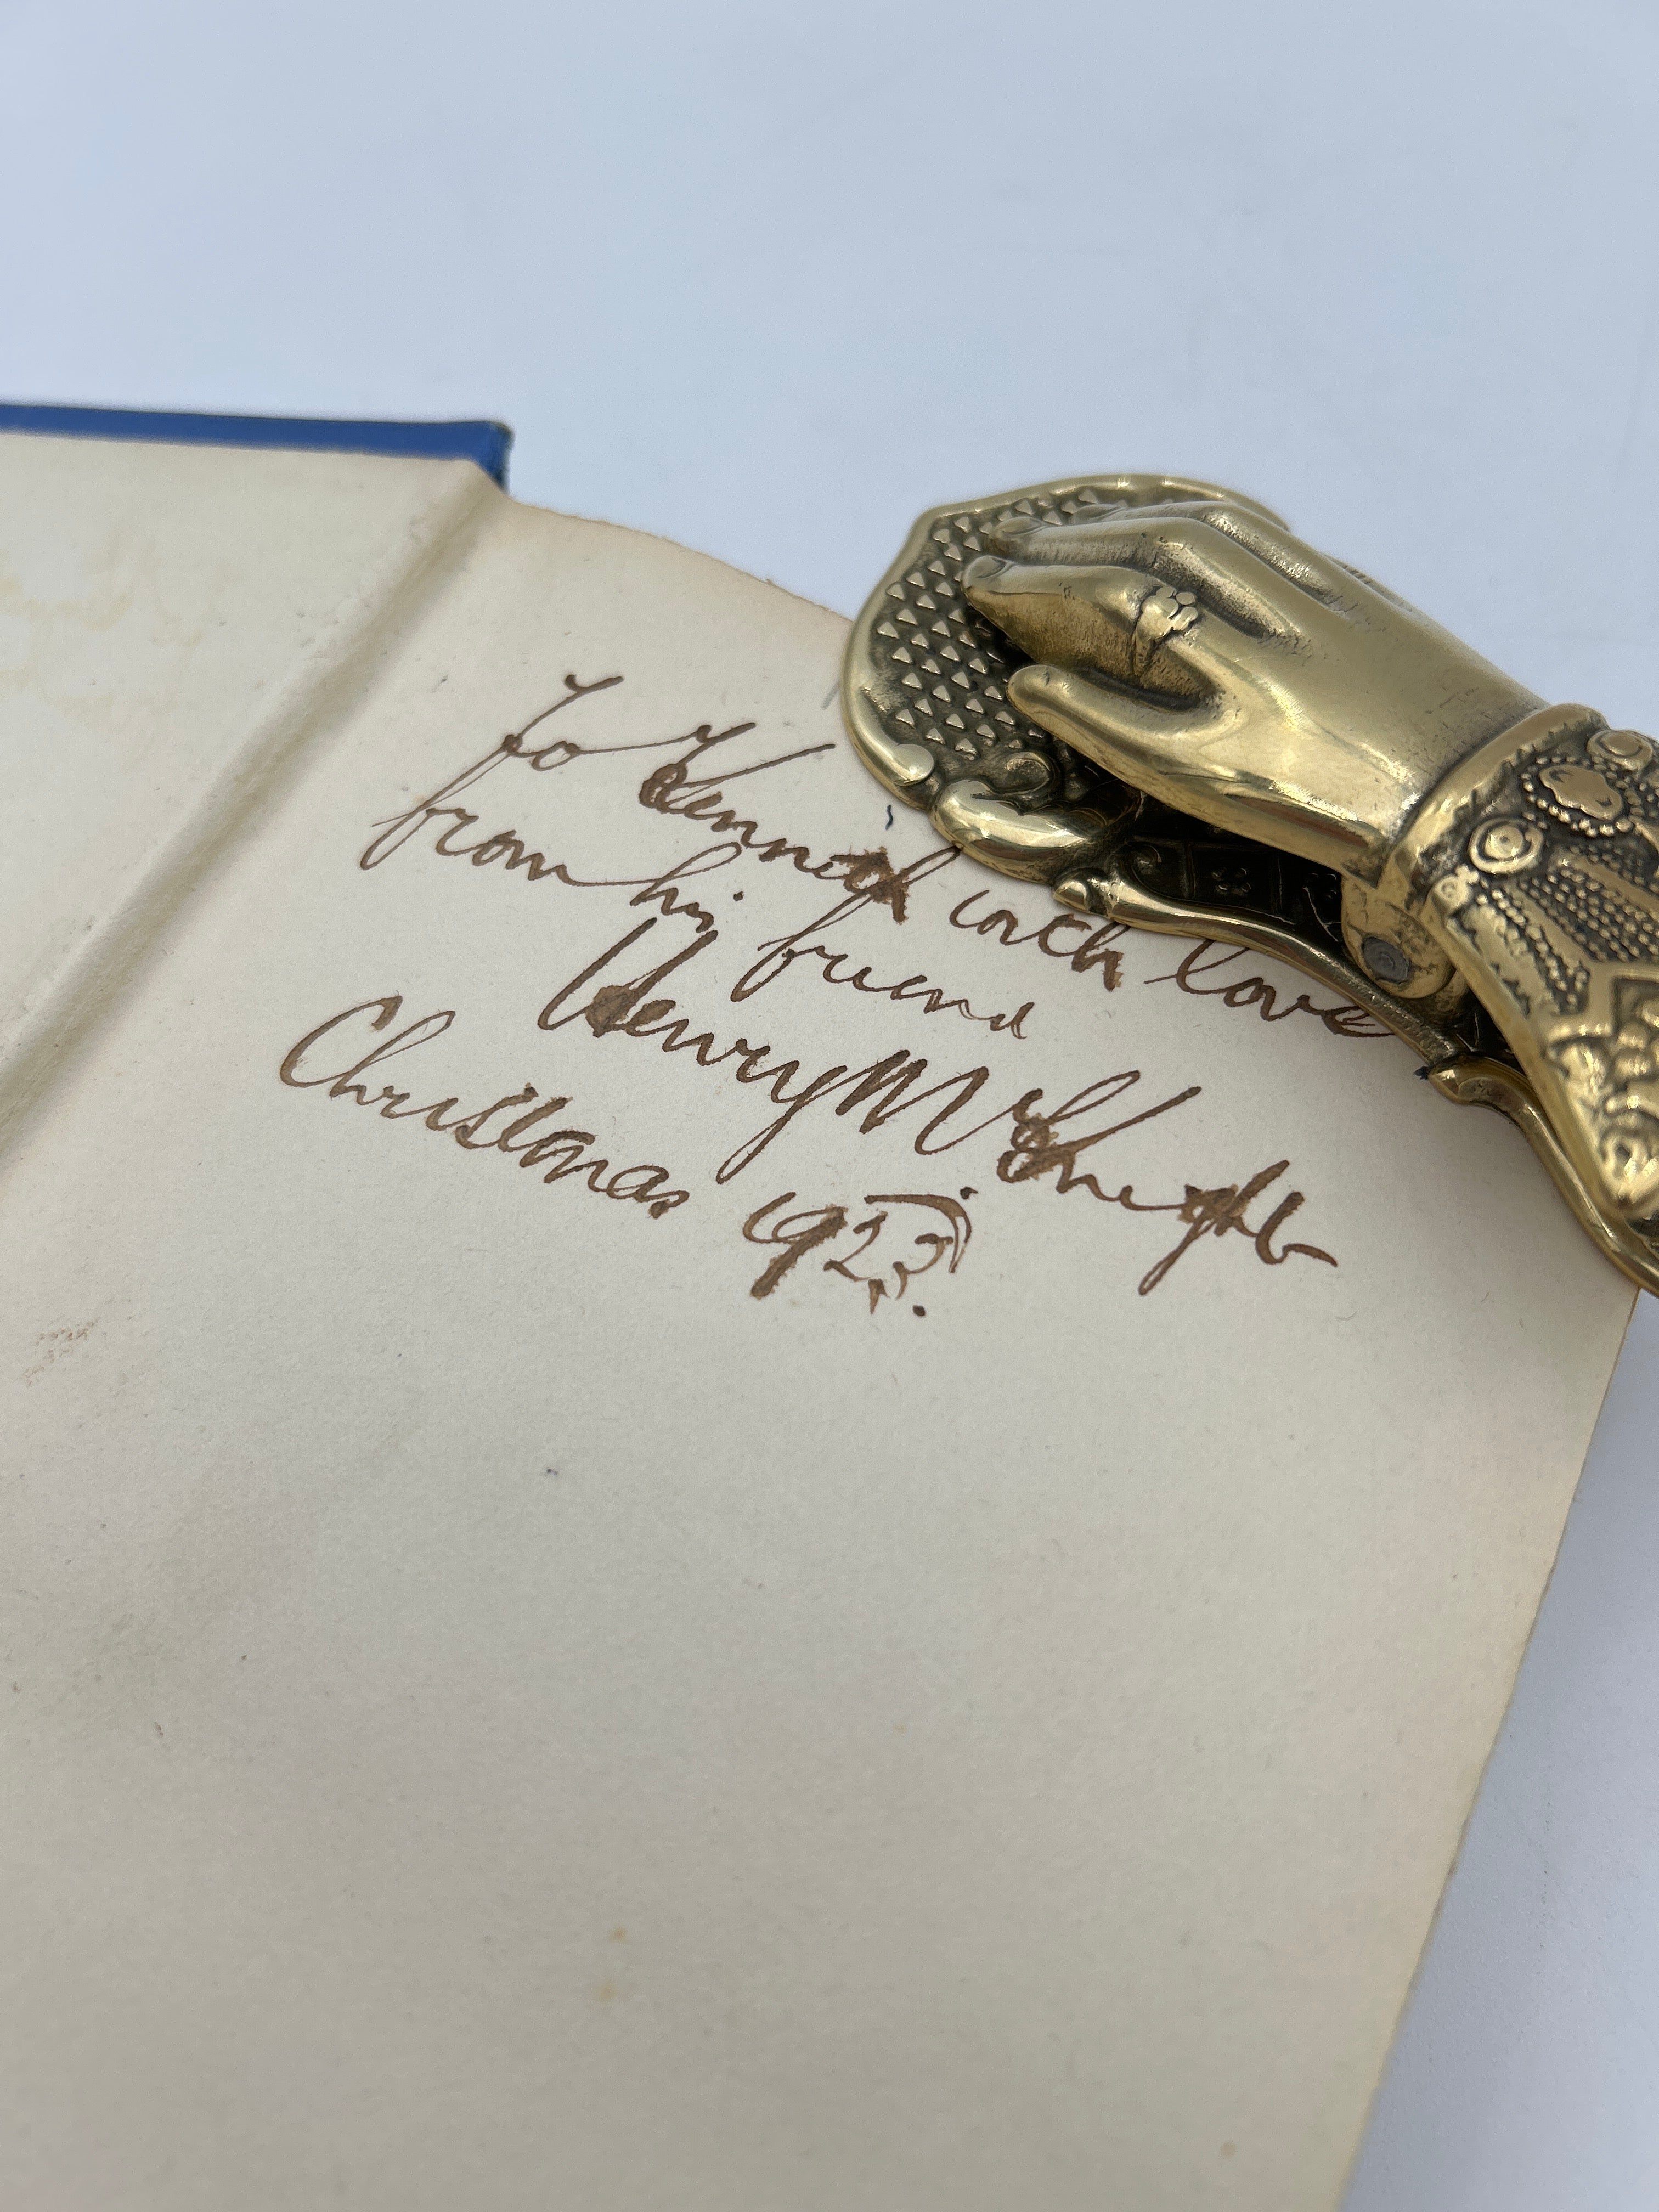 To Kenneth with love
from his friend
Henry McKnight
Christmas 1923.